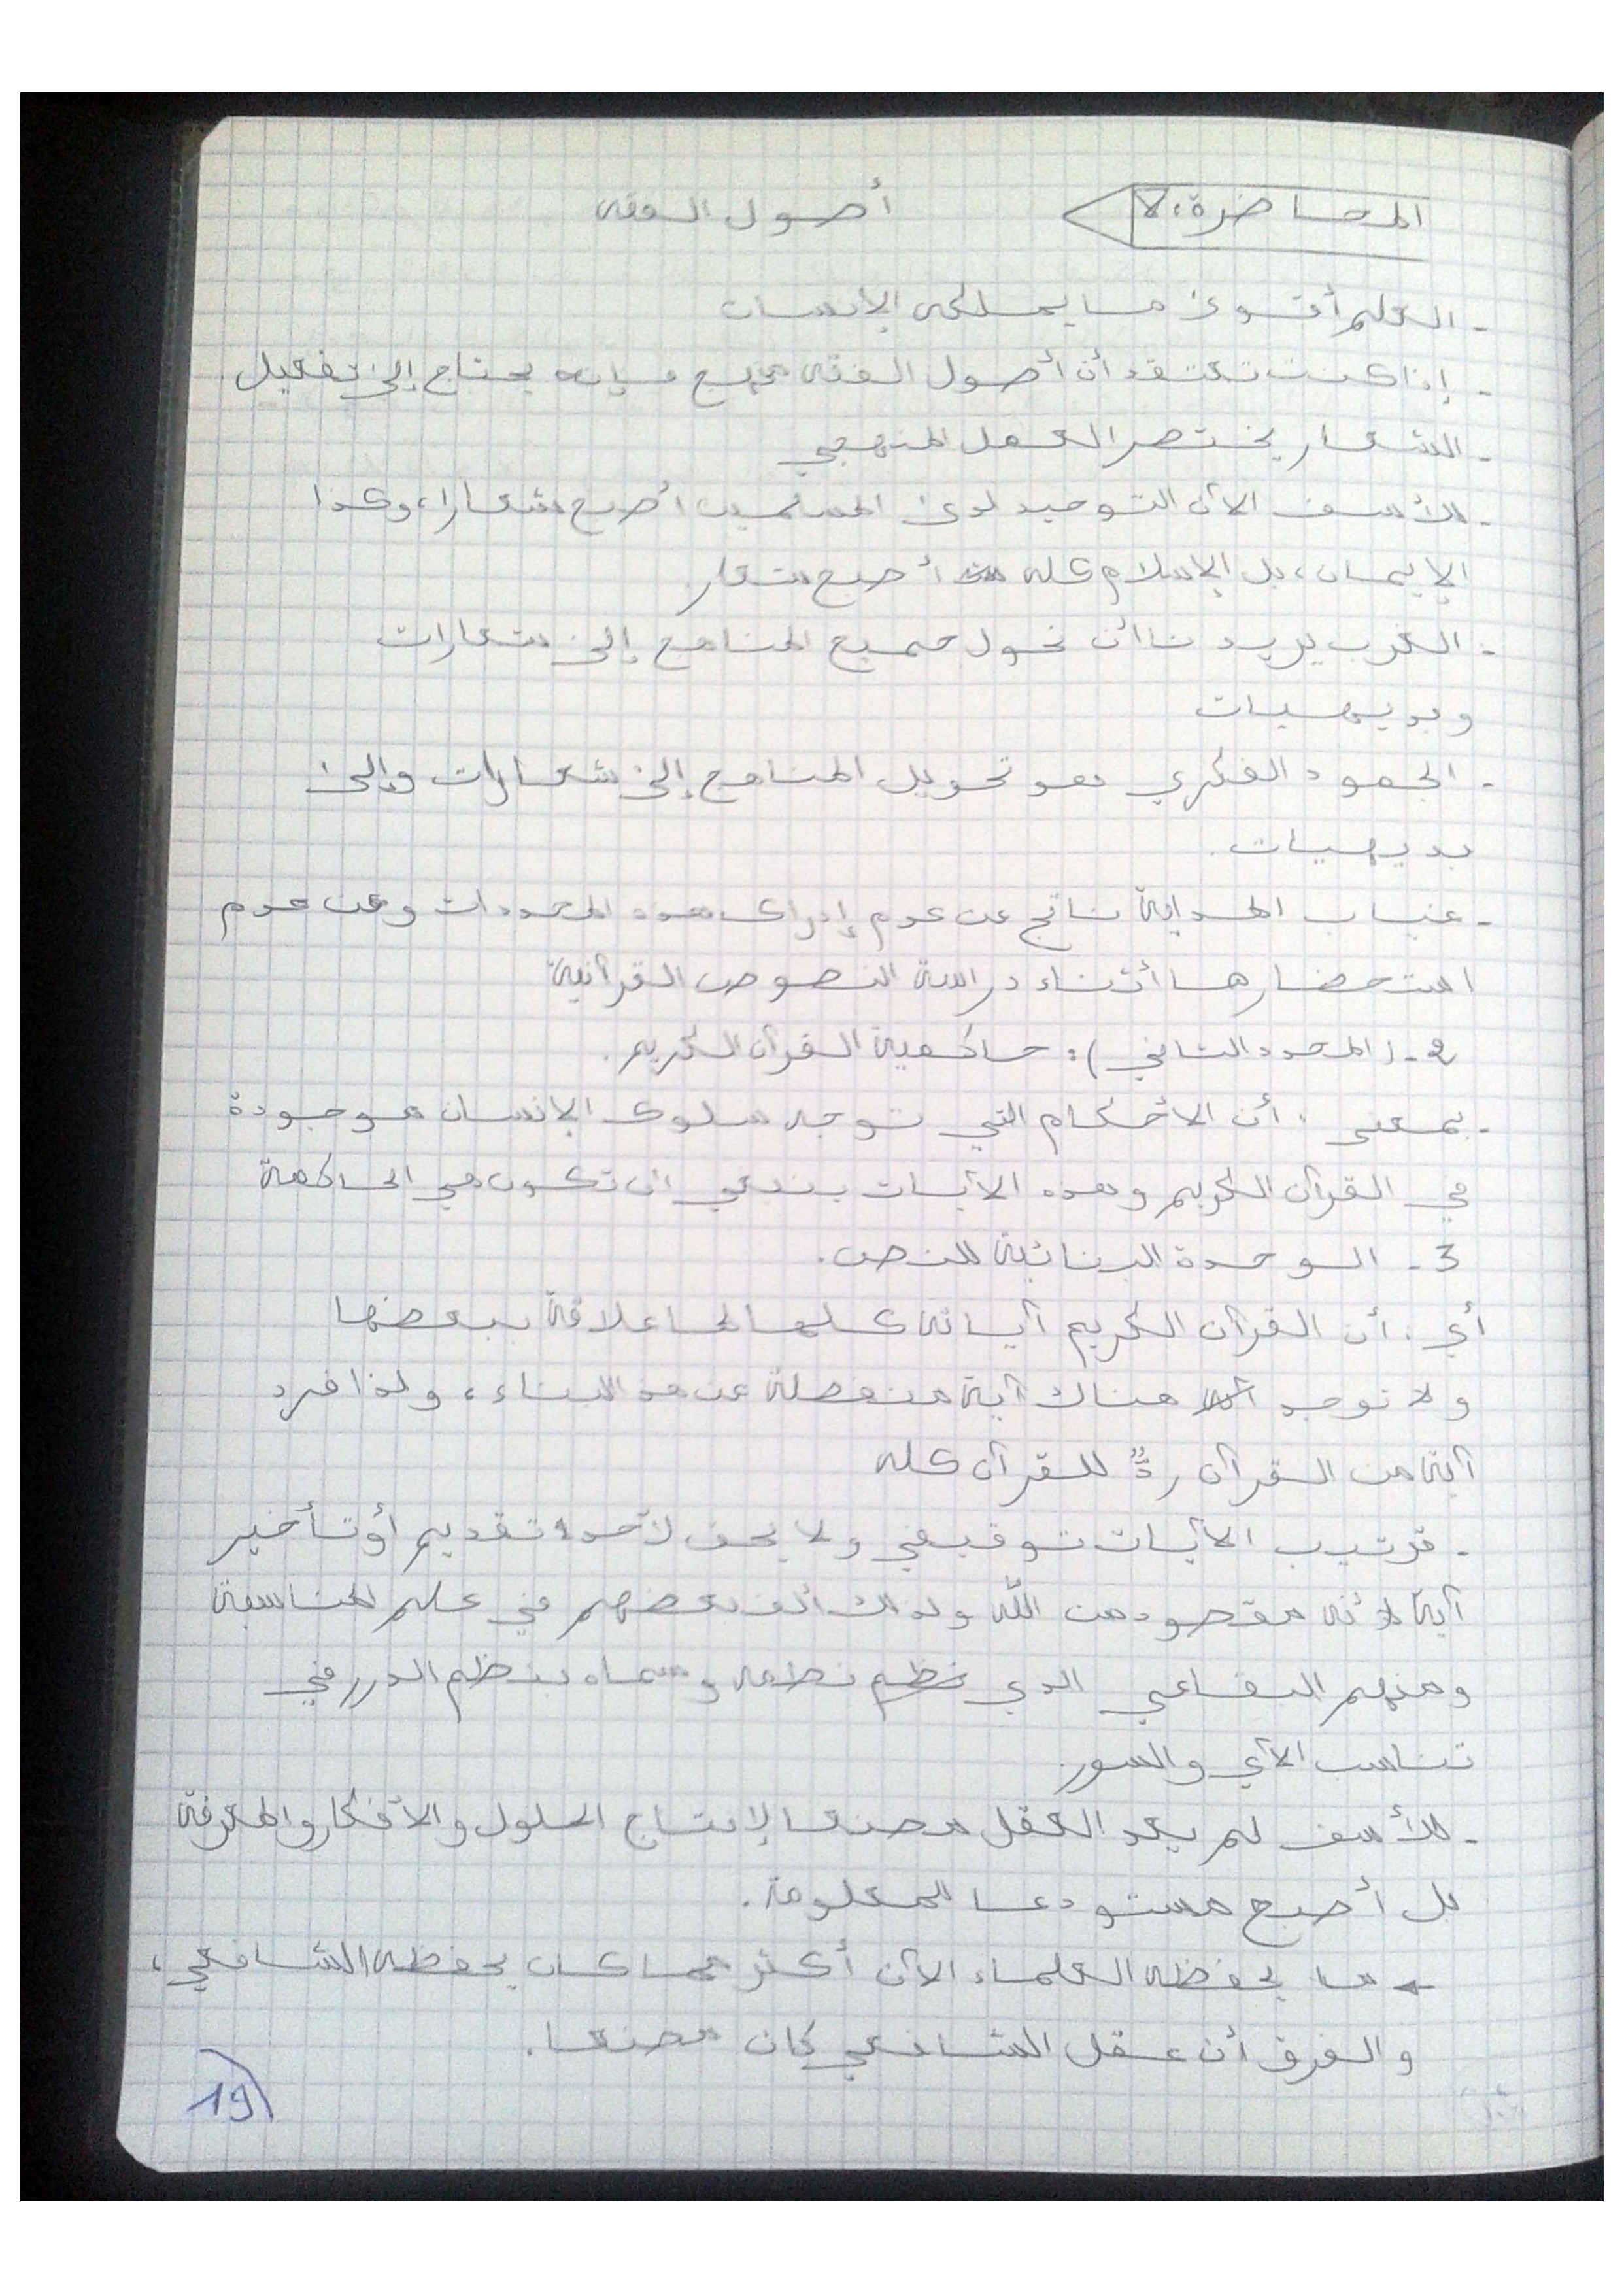 المحاضرة: أصول الفقه
- العلم أقوى ما يملكه الإنسان
- إذا كنت تعتقد أن أصول الفقه منهج فإنه يحتاج إلى تفعيل.
- الشعار يختصر العمل المنهجي
- للأسف الآن التوحيد لدى المسلمين أصبح شعارا، وكذا
الإيمان، بل الإسلام كله أصبح شعار.
- الغرب يريدنا أن نحول جميع المناهج إلى شعارات
وبديهيات
- الجمود الفكري هو تحويل المناهج إلى شعارات وإلى
بديهيات.
- غياب الهداية ناتج عن عدم إدراك هذه المحددات وعن عدم
استحضارها أثناء دراسة النصوص القرآنية
2 - (المحدد الثاني): حاكمية القرآن الكريم.
- بمعنى: أن الأحكام التي توجه سلوك الإنسان موجودة
في القرآن الكريم وهذه الآيات ينبغي أن تكون هي الحاكمة
3 - الوحدة البنائية للنص.
أي: أن القرآن الكريم آياته كلها لها علاقة ببعضها
ولا توجد هناك آية منفصلة عن هذا البناء، ولذا فرد
آية من القرآن ردٌّ للقرآن كله
- ترتيب الآيات توقيفي ولا يحق لأحد تقديم أو تأخير
آية لأنه مقصود من الله ولذلك ألف بعضهم في علم المناسبة
ومنهم البقاعي الذي نظم نظمه وسماه بنظم الدرر في
تناسب الآي والسور.
- للأسف لم يعد العقل مصنعا لإنتاج الحلول والأفكار والمعرفة
بل أصبح مستودعا للمعلومة.
← ما يحفظه العلماء الآن أكثر مما كان يحفظه الشافعي،
والفرق أن عقل الشافعي كان مصنعا.
19